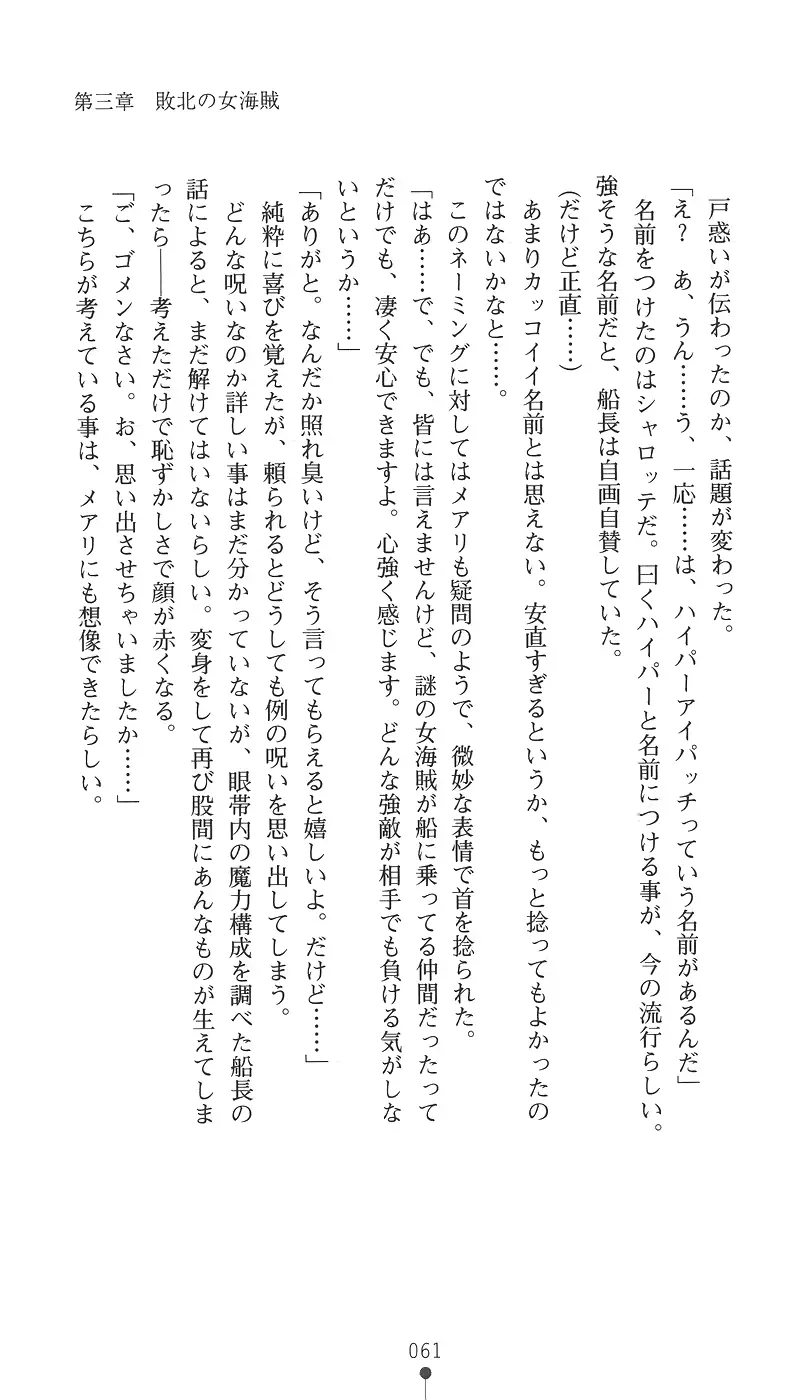 第三章　敗北の女海賊
　戸惑いが伝わったのか、話題が変わった。
「え？　あ、うん……う、一応……は、ハイパーアイパッチっていう名前があるんだ」
　名前をつけたのはシャロッテだ。曰くハイパーと名前につける事が、今の流行らしい。
強そうな名前だと、船長は自画自賛していた。
（だけど正直……）
　あまりカッコイイ名前とは思えない。安直すぎるというか、もっと捻ってもよかったの
ではないかなと……。
　このネーミングに対してはメアリも疑問のようで、微妙な表情で首を捻られた。
「はぁ……で、でも、皆には言えませんけど、謎の女海賊が船に乗ってる仲間だったって
だけでも、凄く安心できますよ。心強く感じます。どんな強敵が相手でも負ける気がしな
いというか……」
「ありがと。なんだか照れ臭いけど、そう言ってもらえると嬉しいよ。だけど……」
　純粋に喜びを覚えたが、頼られるとどうしても例の呪いを思い出してしまう。
　どんな呪いなのか詳しい事はまだ分かっていないが、眼帯内の魔力構成を調べた船長の
話によると、まだ解けてはいないらしい。変身をして再び股間にあんなものが生えてしま
ったら――考えただけで恥ずかしさで顔が赤くなる。
「ご、ゴメンなさい。お、思い出させちゃいましたか……」
　こちらが考えている事は、メアリにも想像できたらしい。
061